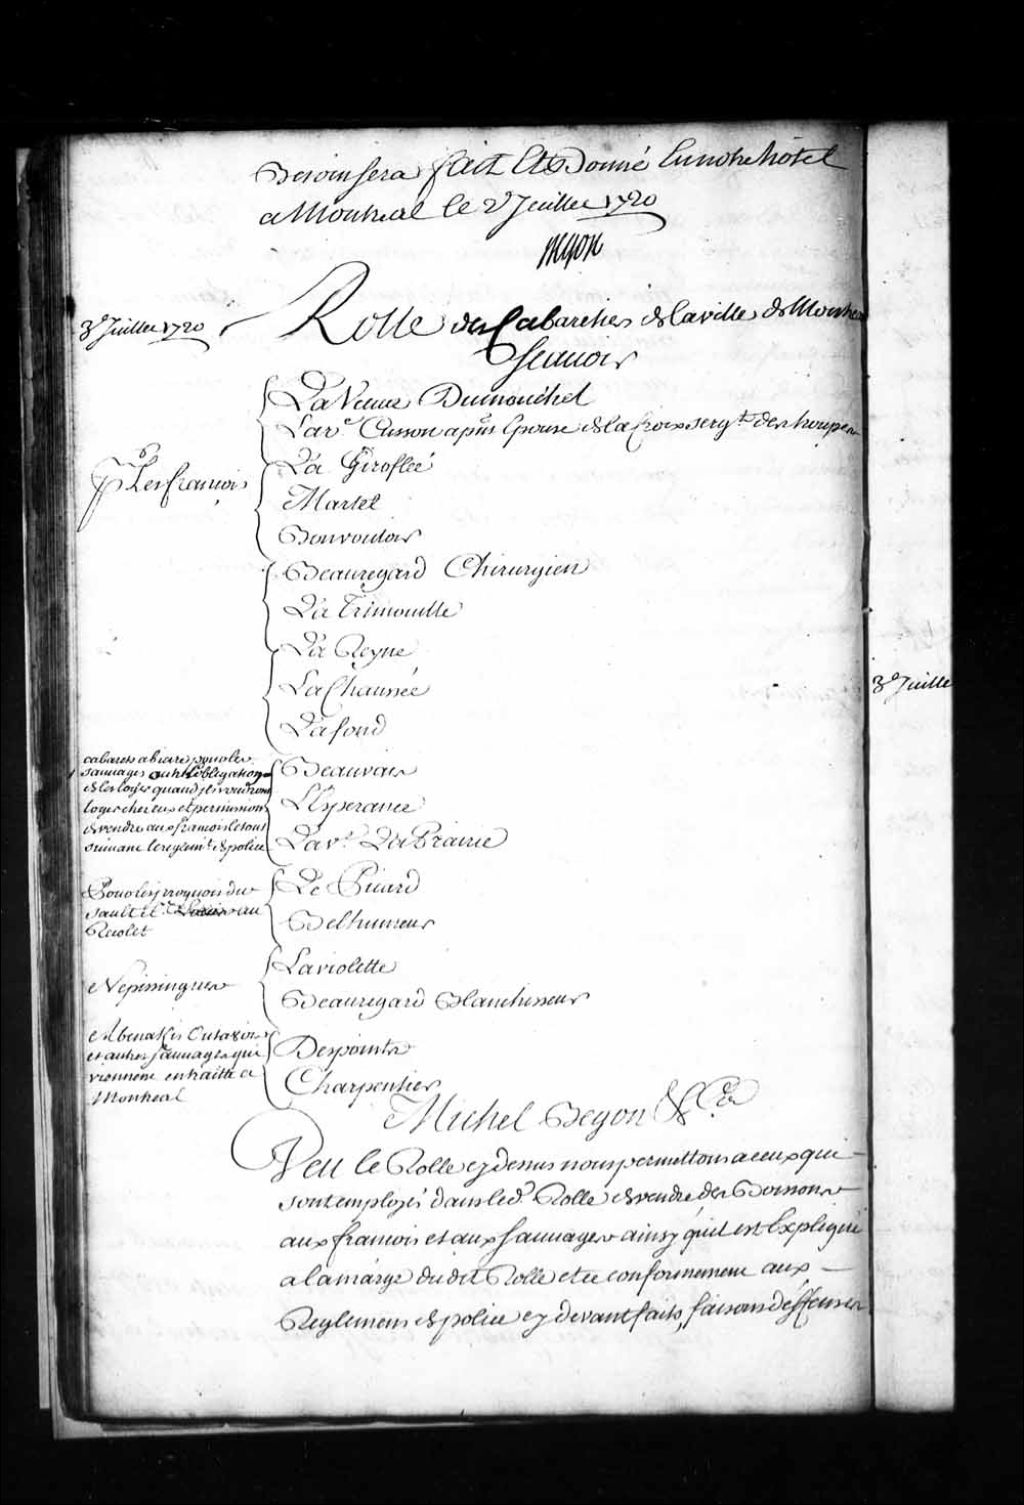 Besoin sera fait Et Donné En notre hôtel
a Montreal le 2e Juillet 1720
Begon
3e Juillet 1720
Rolle des Cabaretiers de la ville de Montreal
Scavoir
La Veuve Dumouchel
La ve. Cusson apñt Epouse de la Croix serg.t des troupes
Pr Les francois
La Giroflée
Martel
Bonvouloir
Beauregard Chirurgien
La Trimouille
La Reyne
La Chaussée
Lafond
cabarets a biere pour les
sauvages outre l'obligation
de les loger quand ils voudront
loger chez eux et permission
de vendre aux francois le tout
suivant le reglem.t de police
Beauvais
L'Esperance
La ve. La Prairie
Pour les iroquois du
Sault et au
Recolet
Le Picard
Belhumeur
Nepissingues
Laviolette
Beauregard Blanchisseur
Abenakis Outaouois
et autres sauvages qui
viennent en traitte a
Montreal
Despointes
Charpentier
Michel Begon &ca
Veu le Rolle cy dessus nous permettons a ceux qui
sont employés dans led. Rolle de vendre des Boissons
aux francois et aux sauvages ainsy qu'il est Expliqué
a la marge du dit Rolle et ce conformement aux
Reglemens de police cy devant faits, faisons deffenses
3e Juille